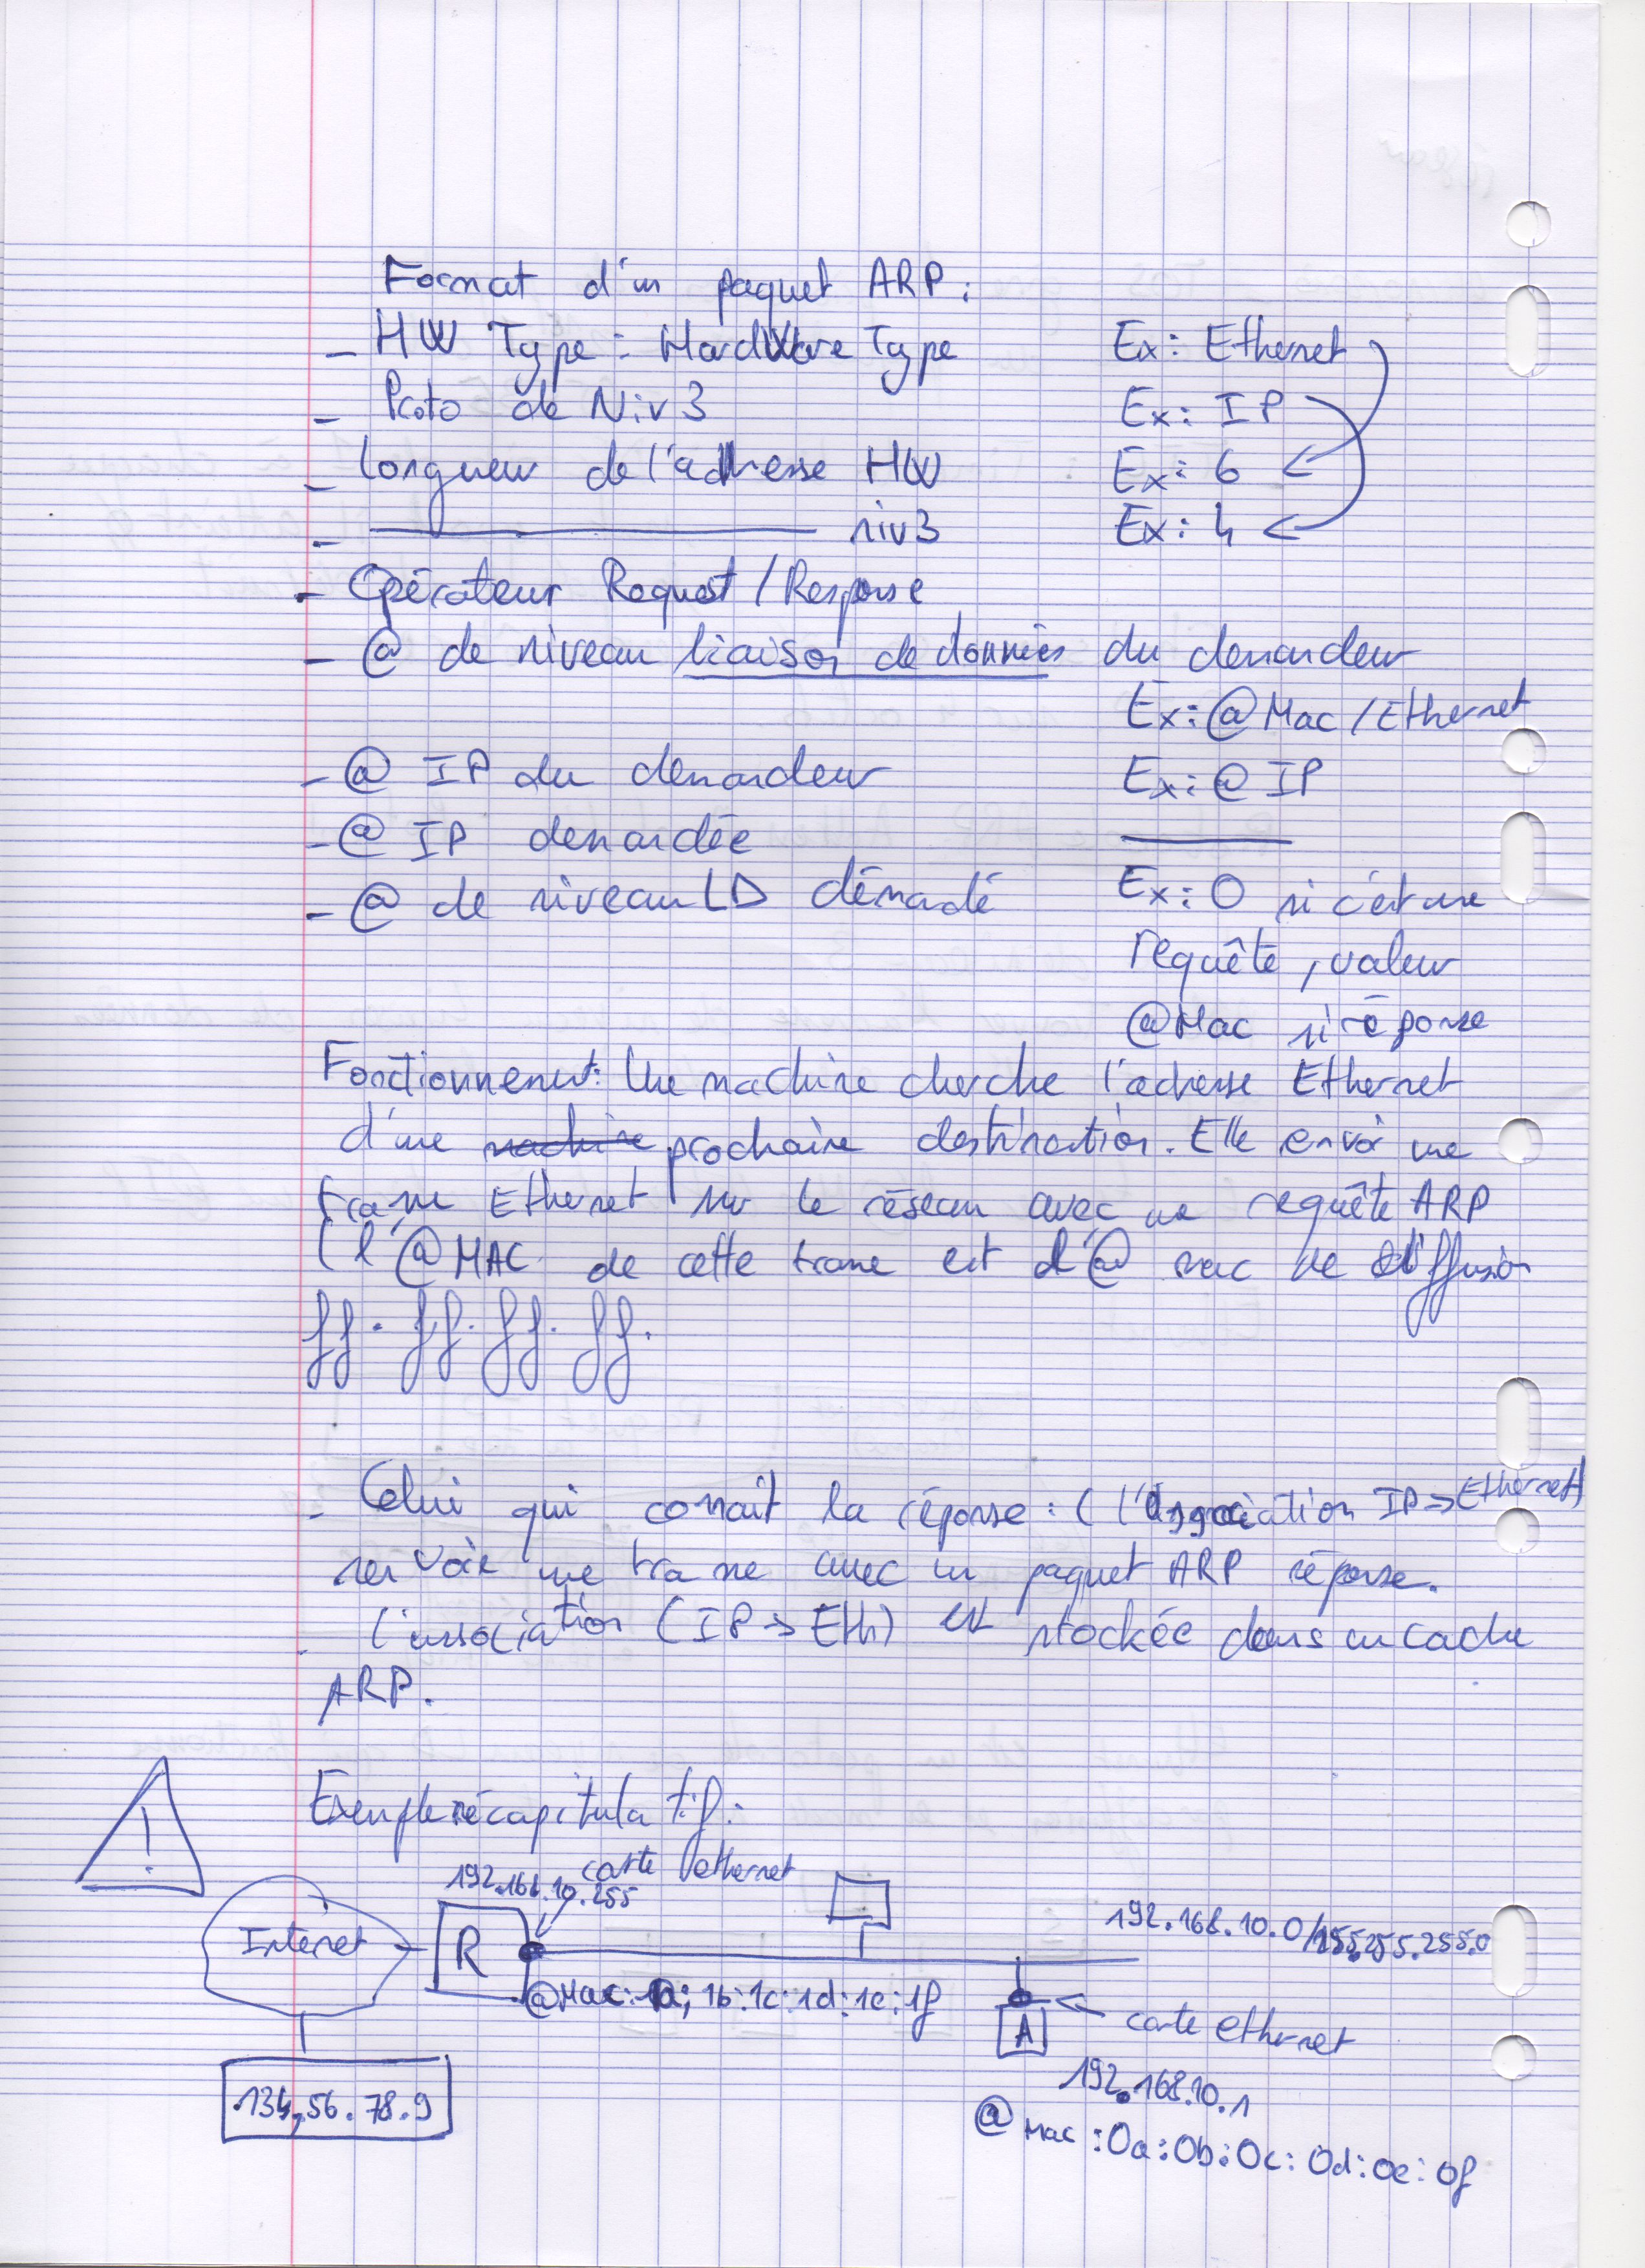 Format d'un paquet ARP :
- HW Type : HardWare Type Ex : Ethernet
- Proto de Niv 3 Ex : IP
- Longueur de l'adresse HW Ex : 6
- ———— niv3 Ex : 4
- Opérateur Request / Response
- @ de niveau liaison de données du demandeur
Ex : @ Mac / Ethernet
- @ IP du demandeur Ex : @ IP
- @ IP demandée ————
- @ de niveau LD démandé Ex : 0 si c'est une
requête, valeur
@Mac si réponse
Fonctionnement : Une machine cherche l'adresse Ethernet
d'une machine prochaine destination. Elle envoi une
trame Ethernet sur le réseau avec une requête ARP
( l'@ MAC de cette trame est l'@ mac de diffusion
ff. ff. ff. ff.
- Celui qui connait la réponse : ( l'association IP → Ethernet)
renvoie une trame avec un paquet ARP réponse.
- l'association (IP → Eth) est stockée dans un cache
ARP.
!
Exemple récapitulatif :
192.168.10.255 carte ethernet
192.168.10.0/255.255.255.0
Internet R
@Mac : 1a : 1b : 1c : 1d : 1e : 1f
A carte ethernet
192.168.10.1
134.56.78.9
@ Mac : 0a : 0b : 0c : 0d : 0e : 0f